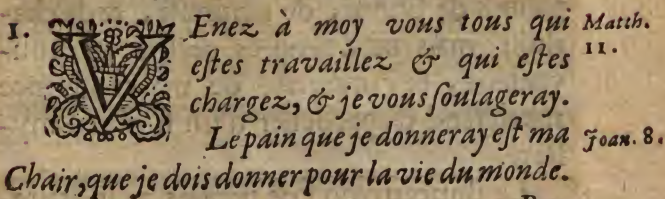 1. VEnez à moy vous tous qui Matth.
eſtes travaillez & qui eſtes 11.
chargez, & je vous ſoulageray.
Le pain que je donneray eſt ma Joan. 8.
Chair, que je dois donner pour la vie du monde.